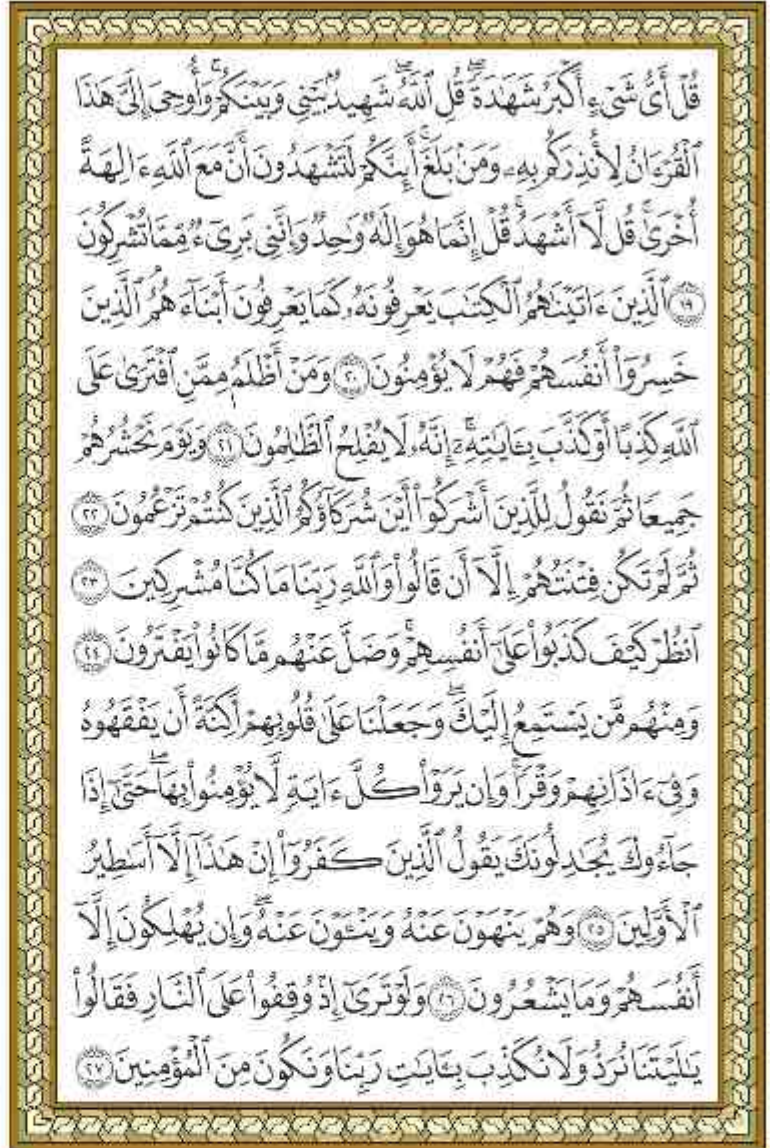 قُلْ أَىُّ شَىْءٍ أَكْبَرُ شَهَٰدَةًۖ قُلِ ٱللَّهُۖ شَهِيدٌۢ بَيْنِى وَبَيْنَكُمْۚ وَأُوحِىَ إِلَىَّ هَٰذَا
ٱلْقُرْءَانُ لِأُنذِرَكُم بِهِۦ وَمَنۢ بَلَغَۚ أَئِنَّكُمْ لَتَشْهَدُونَ أَنَّ مَعَ ٱللَّهِ ءَالِهَةً
أُخْرَىٰۚ قُل لَّآ أَشْهَدُۚ قُلْ إِنَّمَا هُوَ إِلَٰهٌ وَٰحِدٌ وَإِنَّنِى بَرِىٓءٌ مِّمَّا تُشْرِكُونَ
﴿١٩﴾ ٱلَّذِينَ ءَاتَيْنَٰهُمُ ٱلْكِتَٰبَ يَعْرِفُونَهُۥ كَمَا يَعْرِفُونَ أَبْنَآءَهُمُ ٱلَّذِينَ
خَسِرُوٓا۟ أَنفُسَهُمْ فَهُمْ لَا يُؤْمِنُونَ ﴿٢٠﴾ وَمَنْ أَظْلَمُ مِمَّنِ ٱفْتَرَىٰ عَلَى
ٱللَّهِ كَذِبًا أَوْ كَذَّبَ بِـَٔايَٰتِهِۦٓۗ إِنَّهُۥ لَا يُفْلِحُ ٱلظَّٰلِمُونَ ﴿٢١﴾ وَيَوْمَ نَحْشُرُهُمْ
جَمِيعًا ثُمَّ نَقُولُ لِلَّذِينَ أَشْرَكُوٓا۟ أَيْنَ شُرَكَآؤُكُمُ ٱلَّذِينَ كُنتُمْ تَزْعُمُونَ ﴿٢٢﴾
ثُمَّ لَمْ تَكُن فِتْنَتُهُمْ إِلَّآ أَن قَالُوا۟ وَٱللَّهِ رَبِّنَا مَا كُنَّا مُشْرِكِينَ ﴿٢٣﴾
ٱنظُرْ كَيْفَ كَذَبُوا۟ عَلَىٰٓ أَنفُسِهِمْۚ وَضَلَّ عَنْهُم مَّا كَانُوا۟ يَفْتَرُونَ ﴿٢٤﴾
وَمِنْهُم مَّن يَسْتَمِعُ إِلَيْكَۖ وَجَعَلْنَا عَلَىٰ قُلُوبِهِمْ أَكِنَّةً أَن يَفْقَهُوهُ
وَفِىٓ ءَاذَانِهِمْ وَقْرًاۚ وَإِن يَرَوْا۟ كُلَّ ءَايَةٍ لَّا يُؤْمِنُوا۟ بِهَاۖ حَتَّىٰٓ إِذَا
جَآءُوكَ يُجَٰدِلُونَكَ يَقُولُ ٱلَّذِينَ كَفَرُوٓا۟ إِنْ هَٰذَآ إِلَّآ أَسَٰطِيرُ
ٱلْأَوَّلِينَ ﴿٢٥﴾ وَهُمْ يَنْهَوْنَ عَنْهُ وَيَنْـَٔوْنَ عَنْهُۖ وَإِن يُهْلِكُونَ إِلَّآ
أَنفُسَهُمْ وَمَا يَشْعُرُونَ ﴿٢٦﴾ وَلَوْ تَرَىٰٓ إِذْ وُقِفُوا۟ عَلَى ٱلنَّارِ فَقَالُوا۟
يَٰلَيْتَنَا نُرَدُّ وَلَا نُكَذِّبَ بِـَٔايَٰتِ رَبِّنَا وَنَكُونَ مِنَ ٱلْمُؤْمِنِينَ ﴿٢٧﴾